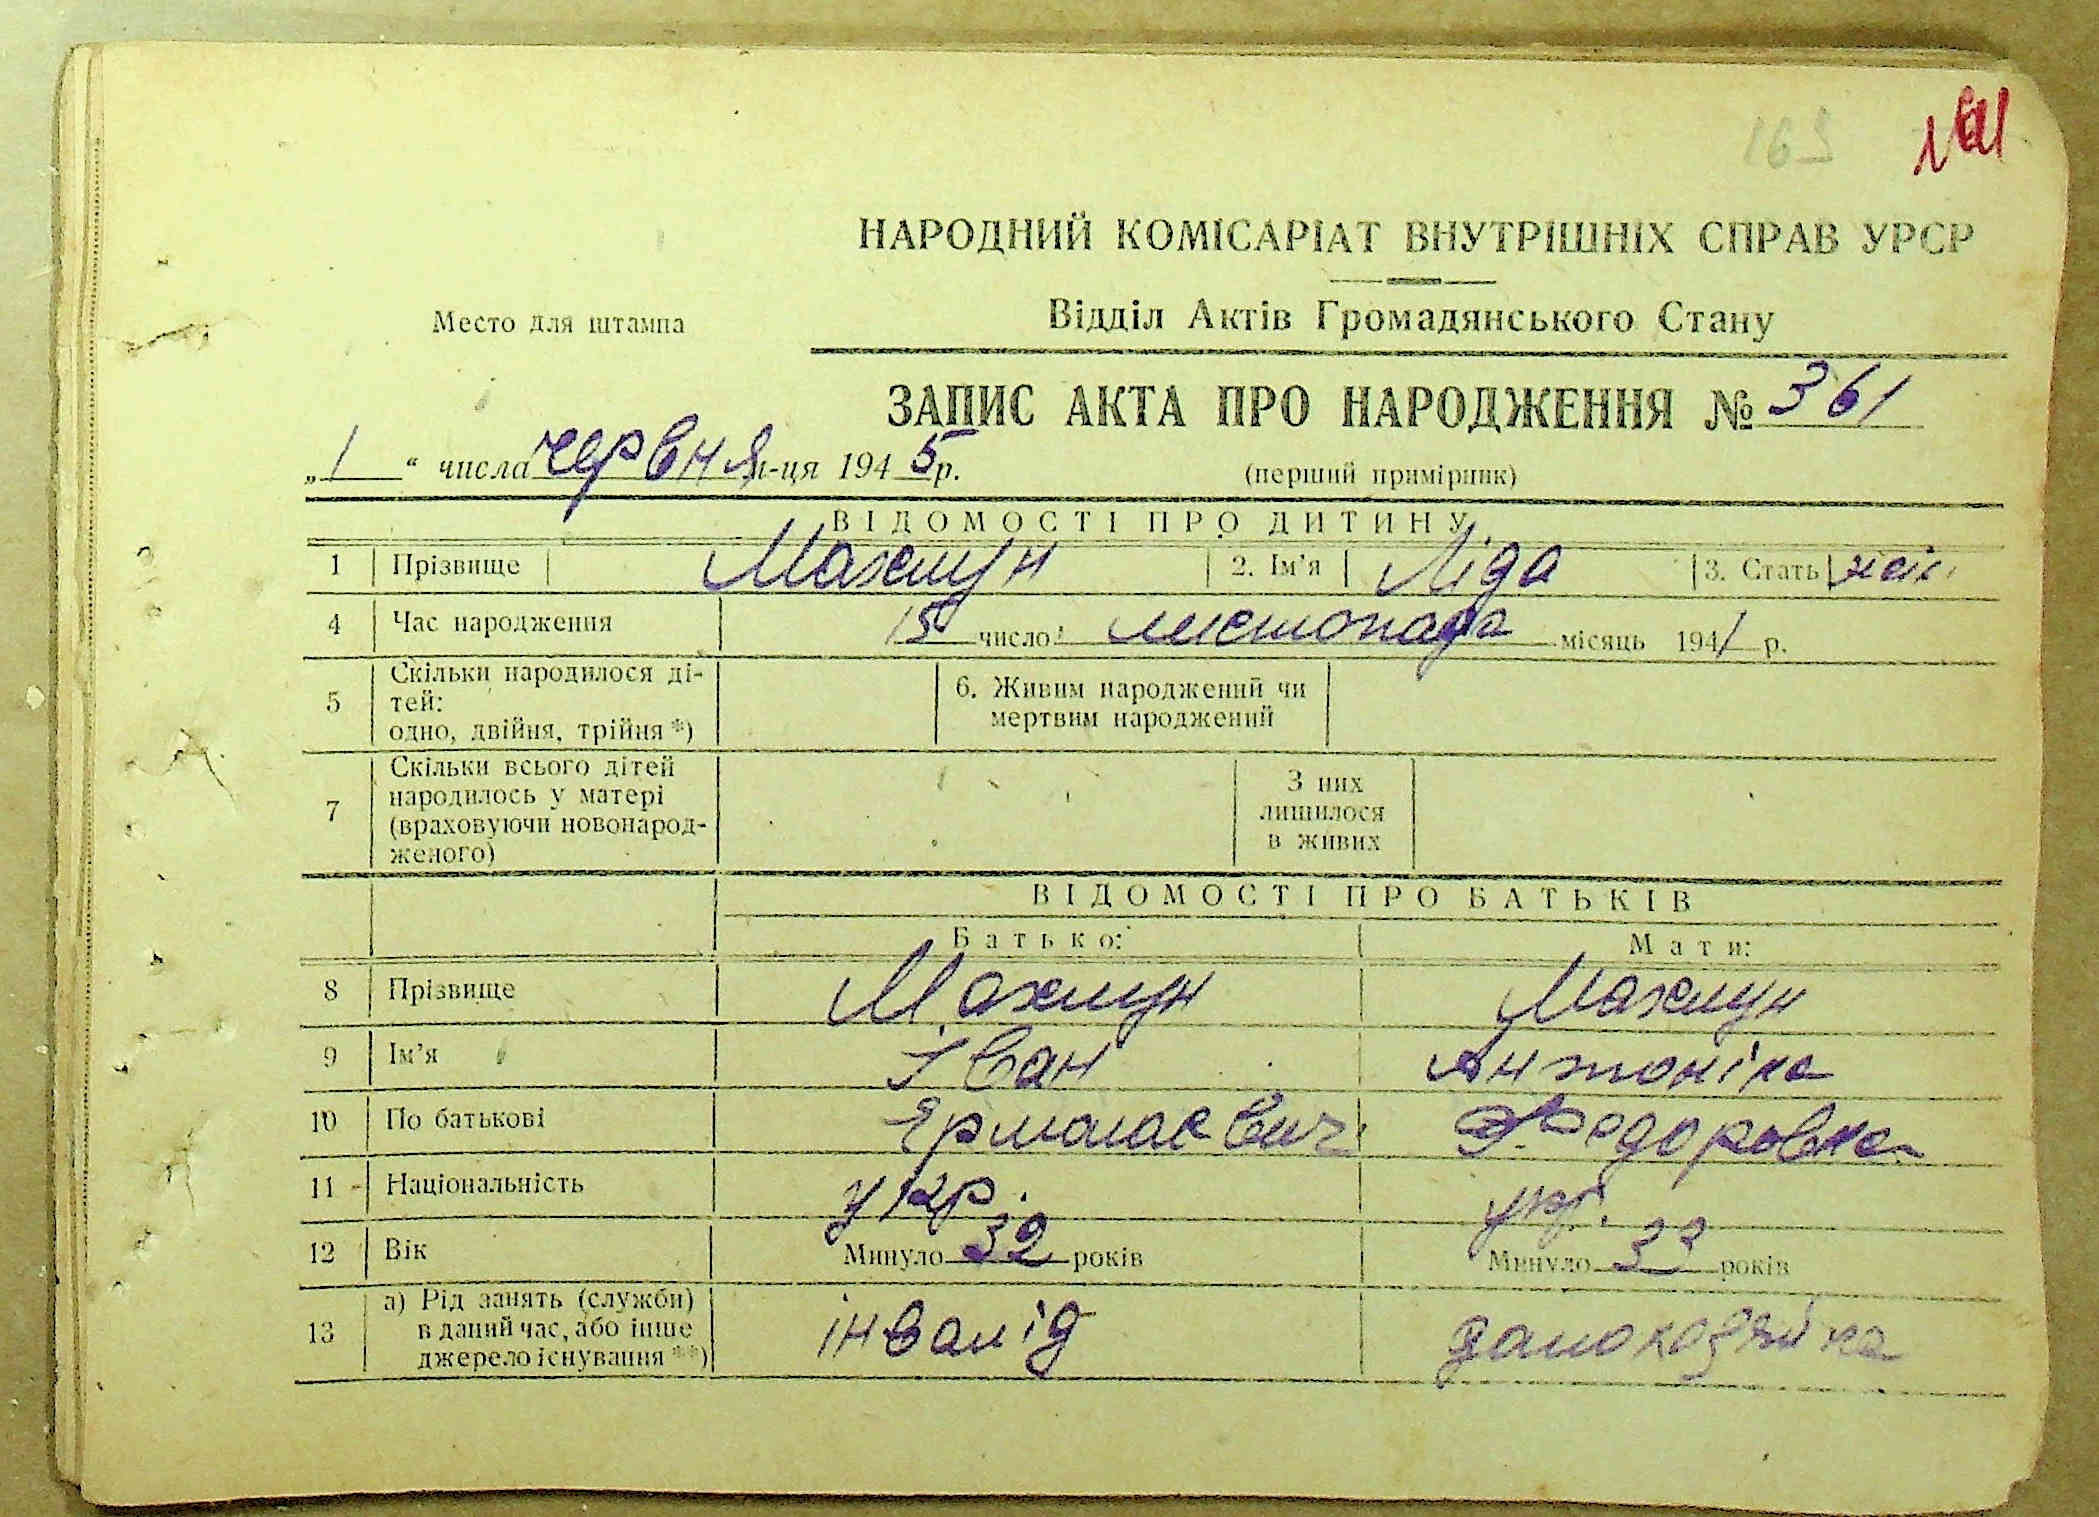 161
169
НАРОДНИЙ КОМІСАРІАТ ВНУТРІШНІХ СПРАВ УРСР
Место для штампа
Відділ Актів Громадянського Стану
ЗАПИС АКТА ПРО НАРОДЖЕННЯ № 361
„1“ числа червня м-ця 1945 р.
(перший примірник)
ВІДОМОСТІ ПРО ДИТИНУ
1 Прізвище Махмун 2. Ім'я Ліда 3. Стать жін.
4 Час народження 15 число листопада місяць 1941 р.
5 Скільки народилося ді-
тей:
одно, двійня, трійня *)
6. Живим народжений чи
мертвим народжений
7 Скільки всього дітей
народилось у матері
(враховуючи новонарод-
женого)
З них
лишилося
в живих
ВІДОМОСТІ ПРО БАТЬКІВ
Батько: Мати:
8 Прізвище Махмун Махмун
9 Ім'я Іван Антоніна
10 По батькові Єрмолаєвич Федоровна
11 Національність укр. укр.
12 Вік Минуло 32 років Минуло 33 років
13 а) Рід занять (служби)
в даний час, або інше
джерело існування **)
інвалід домохазяйка